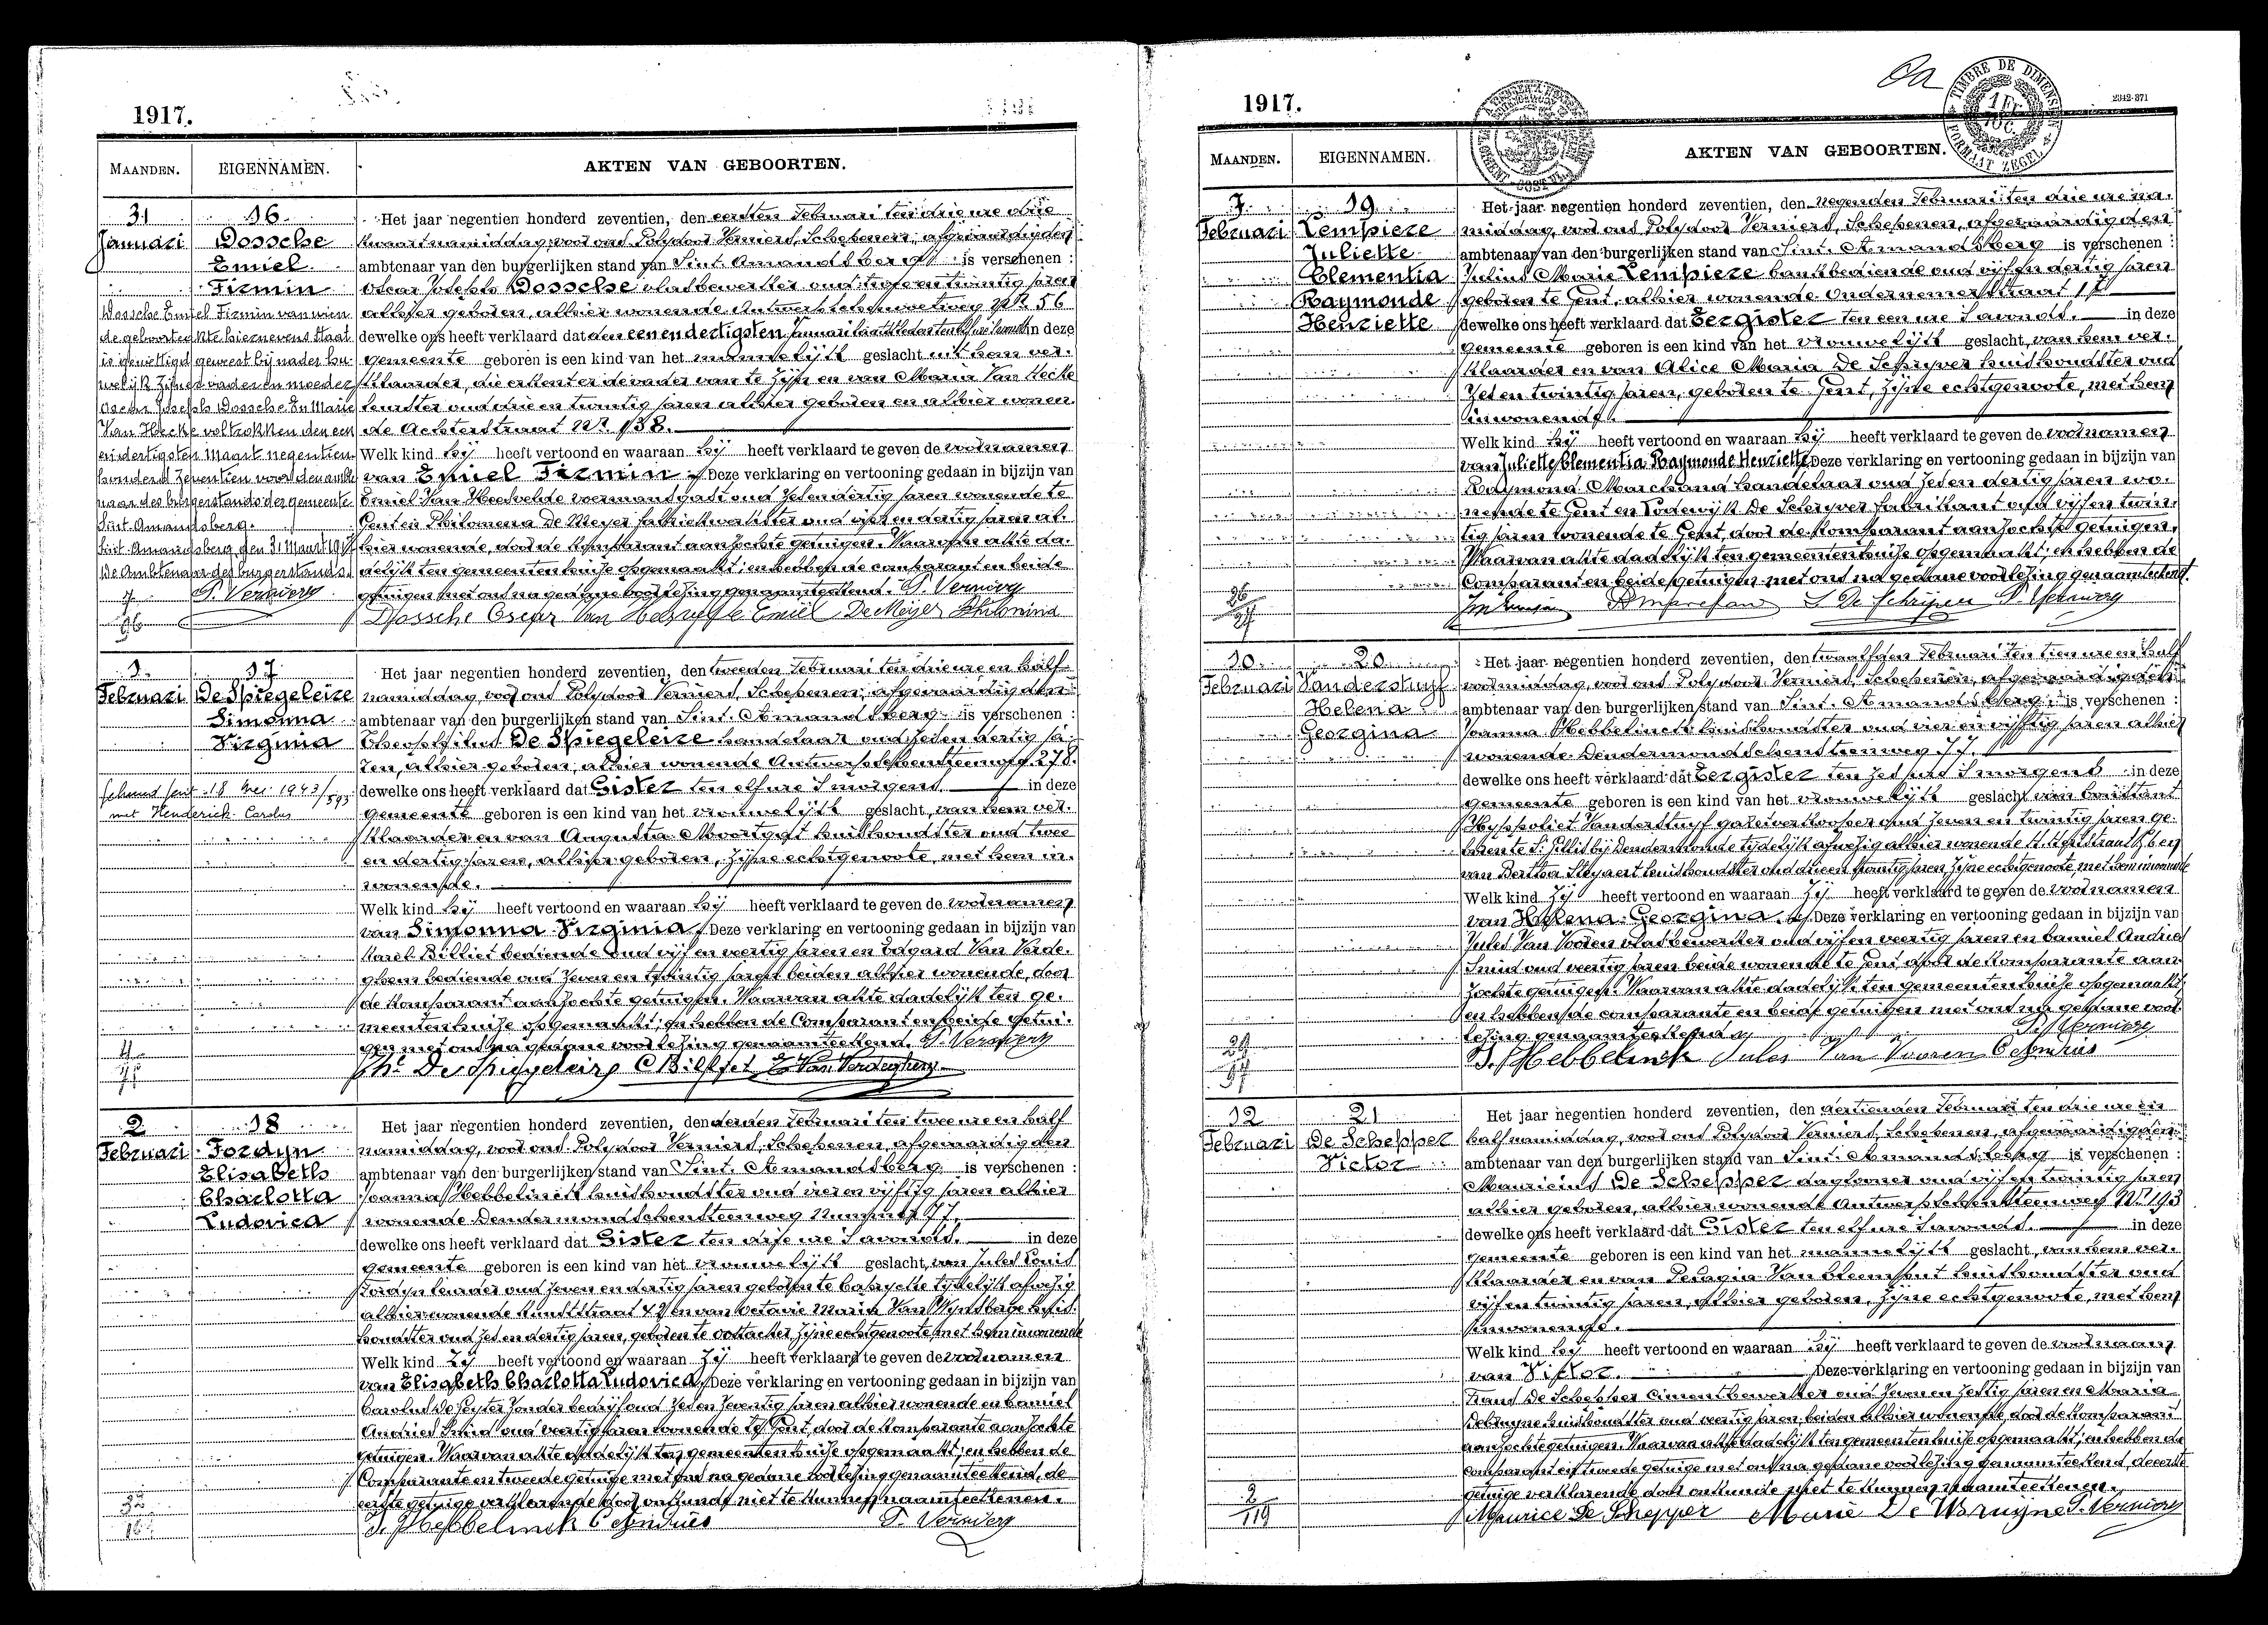 1917.
MAANDEN. EIGENNAMEN. AKTEN VAN GEBOORTEN.
31 Januari
16.
Dossche
Emiel
Firmin
Het jaar negentien honderd zeventien, den eersten Februari ten drie ure drie
kwaart namiddag, voor ons Polydoor Verniers, Schepenen, afgevaardigden
ambtenaar van den burgerlijken stand van Sint. Amandsberg is verschenen :
Oscar Joseph Dossche vlasbewerker oud twintig jaren
alhier geboren, alhier wonende Antwerpschensteenweg Nr. 56
dewelke ons heeft verklaard dat den eenendertigsten Januari laatstleden ten in deze
gemeente geboren is een kind van het mannelijk geslacht uit hem ver.
klaarder, die erkent er de vader van te zijn en van Maria Van Hecke
leurster oud drie en twintig jaren alhier geboren en alhier wonen.
de Achterstraat Nr. 138.
Welk kind hij heeft vertoond en waaraan hij heeft verklaard te geven de voornamen
van Emiel Firmin. Deze verklaring en vertooning gedaan in bijzijn van
Emiel Van Heesvelde voermansgast oud zes en dertig jaren wonende te
Gent en Philomena De Meyer fabriekwerkster oud vijf en dertig jaren al.
hier wonende, door de komparant aanzochte getuigen. Waarvan akte da.
delijk ten gemeentenhuize opgemaakt; en hebben de comparant en beide
getuigen met ons na gedane voorlezing genaamteekend. P. Verniers
Dossche Oscar Van Emiel De Meyer Philomina
Dossche Emiel Firmin van wien
de geboorteakte hiernevens staat
is gewettigd geweest bij nader hu.
welijk zijns vader en moeder
Oscar Joseph Dossche En Maria
Van Hecke voltrokken den een
en dertigsten Maart negentien
honderd zeventien voor den ambte
naar des burgerstands der gemeente
Sint. Amandsberg.
Sint. Amandsberg, den 31 Maart 1917
De Ambtenaar des burgerstands.
P. Verniers
1 Februari
17
De Spiegeleire
Simonna
Virginia
Het jaar negentien honderd zeventien, den tweeden Februari ten drie ure en half
namiddag, voor ons Polydoor Verniers, Schepenen, afgevaardigden
ambtenaar van den burgerlijken stand van Sint. Amandsberg is verschenen :
Theophilus De Spiegeleire handelaar oud zes en dertig ja.
ren, alhier geboren, alhier wonende Antwerpschensteenweg 278.
dewelke ons heeft verklaard dat Gister ten elf ure 's morgens in deze
gemeente geboren is een kind van het vrouwelijk geslacht, van hem ver.
klaarder en van Augusta Moortgat huishoudster oud twee
en dertig jaren, alhier geboren, zijne echtgenoote, met hem in.
wonende.
Welk kind hij heeft vertoond en waaraan hij heeft verklaard te geven de voornamen
van Simonna Virginia. Deze verklaring en vertooning gedaan in bijzijn van
Karel Billiet bediende oud vijf en veertig jaren en Edgard Van Verde.
ghem bediende oud zeven en twintig jaren beiden alhier wonende, door
de komparant aanzochte getuigen. Waarvan akte dadelijk ten ge.
meentenhuize opgemaakt; en hebben de Comparant en beide getui.
gen met ons na gedane voorlezing genaamteekend. P. Verniers
Th. De Spiegeleire C Billiet Van Verdeghem
18 Mei 1943/593
met Henderick Carolus
2 Februari
18
Fordyn
Elisabeth
Charlotta
Ludovica
Het jaar negentien honderd zeventien, den derden Februari ten twee ure en half
namiddag, voor ons Polydoor Verniers, Schepenen, afgevaardigden
ambtenaar van den burgerlijken stand van Sint. Amandsberg is verschenen :
Joanna Hebbelinck huishoudster oud vier en vijftig jaren alhier
wonende Dendermondschensteenweg Nummer 77.
dewelke ons heeft verklaard dat Gister ten vijf ure 's avonds. in deze
gemeente geboren is een kind van het vrouwelijk geslacht, van Jules Louis
Fordyn leurder oud zeven en dertig jaren geboren te tijdelijk afwezig
alhier wonende straat 42 en van Octavie Maria Van Wynsberge huis.
houdster oud zes en dertig jaren, geboren te Oostacker zijne echtgenoote, met hem inwonende
Welk kind zij heeft vertoond en waaraan zij heeft verklaard te geven de voornamen
van Elisabeth Charlotta Ludovica. Deze verklaring en vertooning gedaan in bijzijn van
Carolus De Pryter zonder bedrijf oud zes en zeventig jaren alhier wonende en Camiel
Andries Smid oud veertig jaren wonende te Gent, door de komparante aanzochte
getuigen. Waarvan akte dadelijk ten gemeentenhuize opgemaakt; en hebben de
Comparante en tweede getuige met ons na gedane voorlezing genaamteekend, de
eerste getuige verklarende door onkunde niet te kunnen naamteekenen.
J. Hebbelinck C Andries P. Verniers
1917.
TIMBRE DE DIMENSION
FORMAAT ZEGEL
MAANDEN. EIGENNAMEN. AKTEN VAN GEBOORTEN.
7. Februari
19.
Lempiere
Juliette
Clementia
Raymonde
Henriette
Het jaar negentien honderd zeventien, den negenden Februari ten drie ure na.
middag, voor ons Polydoor Verniers, Schepenen, afgevaardigden
ambtenaar van den burgerlijken stand van Sint. Amandsberg is verschenen :
Julius Marie Lempiere bankbediende oud vijf en dertig jaren
geboren te Gent, alhier wonende Ondernemerstraat 17
dewelke ons heeft verklaard dat Eergister ten een ure 's avonds. in deze
gemeente geboren is een kind van het vrouwelijk geslacht, van hem ver.
klaarder en van Alice Maria De Schryver huishoudster oud
zes en twintig jaren, geboren te Gent, zijne echtgenoote, met hem
inwonende.
Welk kind hij heeft vertoond en waaraan hij heeft verklaard te geven de voornamen
van Juliette Clementia Raymonde Henriette. Deze verklaring en vertooning gedaan in bijzijn van
Raymond Marchand handelaar oud zes en dertig jaren wo.
nende te Gent en Lodewijk De Schryver fabrikant oud vijf en twin.
tig jaren wonende te Gent, door de komparant aanzochte getuigen.
Waarvan akte dadelijk ten gemeentenhuize opgemaakt; en hebben de
Comparant en beide getuigen met ons na gedane voorlezing genaamteekend.
L De Schrijver P. Verniers
10. Februari
20
Vanderstuyf
Helena
Georgina
Het jaar negentien honderd zeventien, den twaalfden Februari ten tien ure en half
voormiddag, voor ons Polydoor Verniers, Schepenen, afgevaardigden
ambtenaar van den burgerlijken stand van Sint. Amandsberg is verschenen :
Joanna Hebbelinck huishoudster oud vier en vijftig jaren alhier
wonende Dendermondschensteenweg 77.
dewelke ons heeft verklaard dat Eergister ten zes ure 's morgens in deze
gemeente geboren is een kind van het vrouwelijk geslacht van Constant
Hyppoliet Vanderstuyf oud zeven en twintig jaren ge.
boren te St. Gillis bij Dendermonde tijdelijk afwezig alhier wonende en
van Bertha Steyaert huishoudster oud drie en twintig jaren, zijne echtgenoote, met hem inwonende
Welk kind zij heeft vertoond en waaraan zij heeft verklaard te geven de voornamen
van Helena Georgina. Deze verklaring en vertooning gedaan in bijzijn van
Jules Van Vooren vlasbewerker oud vijf en veertig jaren en Camiel Andries
Smid oud veertig jaren beide wonende te Gent, door de komparante aan.
zochte getuigen. Waarvan akte dadelijk ten gemeentenhuize opgemaakt;
en hebben de comparante en beide getuigen met ons na gedane voor.
lezing genaamteekend. P. Verniers
J. Hebbelinck Jules Van Vooren C Andries
12 Februari
21
De Schepper
Victor
Het jaar negentien honderd zeventien, den dertienden Februari ten drie ure en
half namiddag, voor ons Polydoor Verniers, Schepenen, afgevaardigden
ambtenaar van den burgerlijken stand van Sint. Amandsberg is verschenen :
Mauricius De Schepper daglooner oud vijf en twintig jaren
alhier geboren, alhier wonende Antwerpschensteenweg Nr. 193
dewelke ons heeft verklaard dat Gister ten elf ure 's avonds. in deze
gemeente geboren is een kind van het mannelijk geslacht, van hem ver.
klaarder en van Pelagia Van Cleemput huishoudster oud
vijf en twintig jaren, alhier geboren, zijne echtgenoote, met hem
inwonende.
Welk kind hij heeft vertoond en waaraan hij heeft verklaard te geven de voornaam
van Victor. Deze verklaring en vertooning gedaan in bijzijn van
Frans De Schepper Cimentbewerker oud zeven en zestig jaren en Maria
Debruyne huishoudster oud veertig jaren, beiden alhier wonende, door de komparant
aanzochte getuigen. Waarvan akte dadelijk ten gemeentenhuize opgemaakt; en hebben de
comparant en tweede getuige met ons na gedane voorlezing genaamteekend, de eerste
getuige verklarende door onkunde niet te kunnen naamteekenen.
Maurice De Schepper Marie De Bruyne P. Verniers